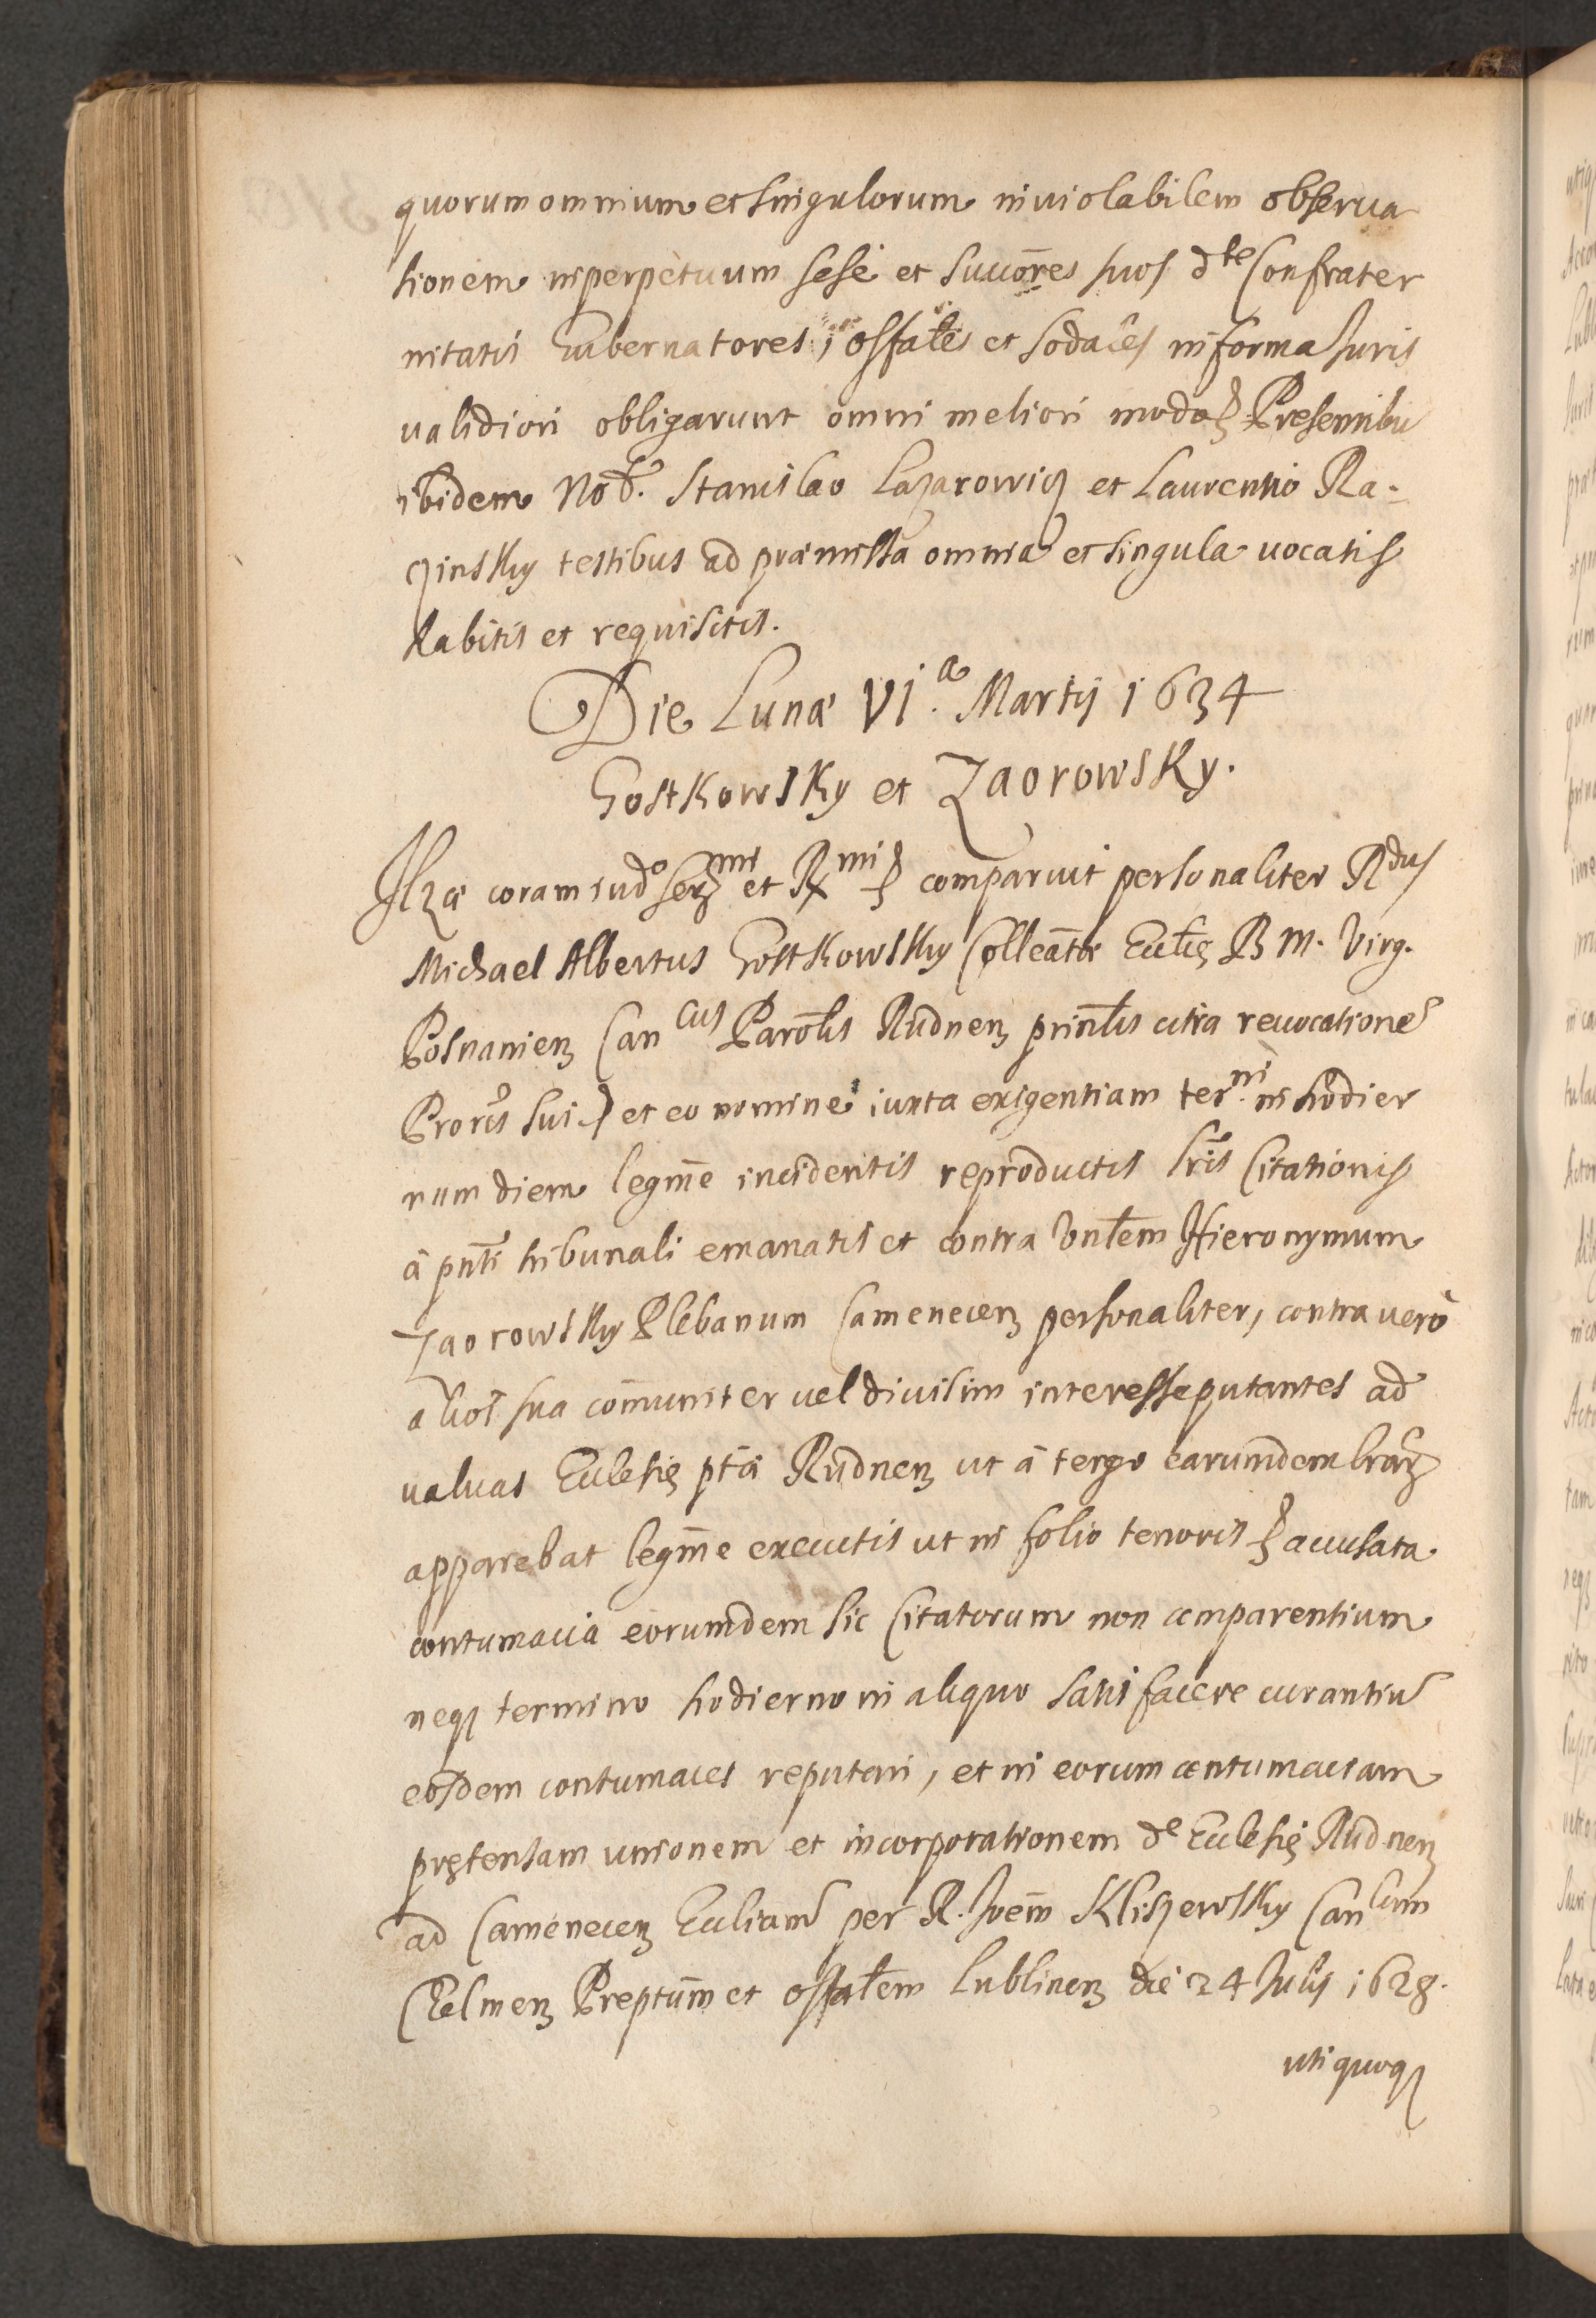 quorum omnium et singulorum inviolabilem observa
tionem in perpetuum sese et succōres suos d^te Confrater
nitatis Gubernatores, offāles et sodales in forma Juris
validiori obligarunt omni meliori modo Presentibus
ibidem Nob. Stanislao Lazarowicz et Laurentio Ra-
czinsky testibus ad præmissa omnia et singula vocatis
habitis et requisitis.
Die Lunæ VI.^a Martij 1634
Gostkowsky et Zaorowsky.
Ilzæ coram Iud^o Ser^mi et R^mi comparuit personaliter R^dus
Michael Albertus Gostkowsky Colleātæ Eccliæ B. M. Virg.
Posnanien Can^cus Parolis Rudnen prīnlis citra revocatione
Procris sui et eo nomine iuxta exigentiam ter^ni in hodier
num diem legmē incidentis reproductis lris Citationis
à pnti tribunali emanatis et contra Vnlem Hieronymum
Zaorowsky Plebanum Camenecen personaliter, contra vero
alios sua cōmuniter vel divisim interesse putantes ad
valvas Ecclesię ptæ Rudnen ut à tergo earumdem lrarum
apparebat legmē executis ut in folio tenoris accusata
contumacia eorumdem sic Citatorum non comparentium
neq termino hodierno in aliquo satisfacere curantiu
eosdem contumaces reputari, et in eorum contumaciam
prętensam unionem et incorporationem d^e Ecclesię Rudnen
ad Camenecen Eccliam per R. Joēm Kliszewsky Can^cum
Chelmen Preptum et offālem Lublinen die 24 Julij 1628.
uti quoq